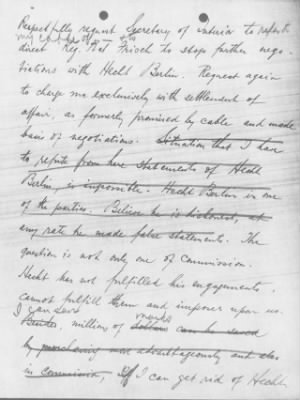 Respectfully request Secretary of interior to
direct Reg. Rat to stop further nego-
tiations with Hecht Berlin. Request again
to charge me exclusively with settlement of
affair, as formerly promised by cable and made
basis of negotiations. Situation that I have
to refute from here statements of Hecht
Berlin, is impossible. Hecht Berlin is one
of the parties. Believe he is dishonest, at
any rate he made false statements. The
question is not only one of commission.
Hecht has not fulfilled his engagements,
cannot fulfill them and imposes upon us.
I can save
millions of marks dollars can be saved
by purchasing most advantageously and also
in commission, if I can get rid of Hecht,